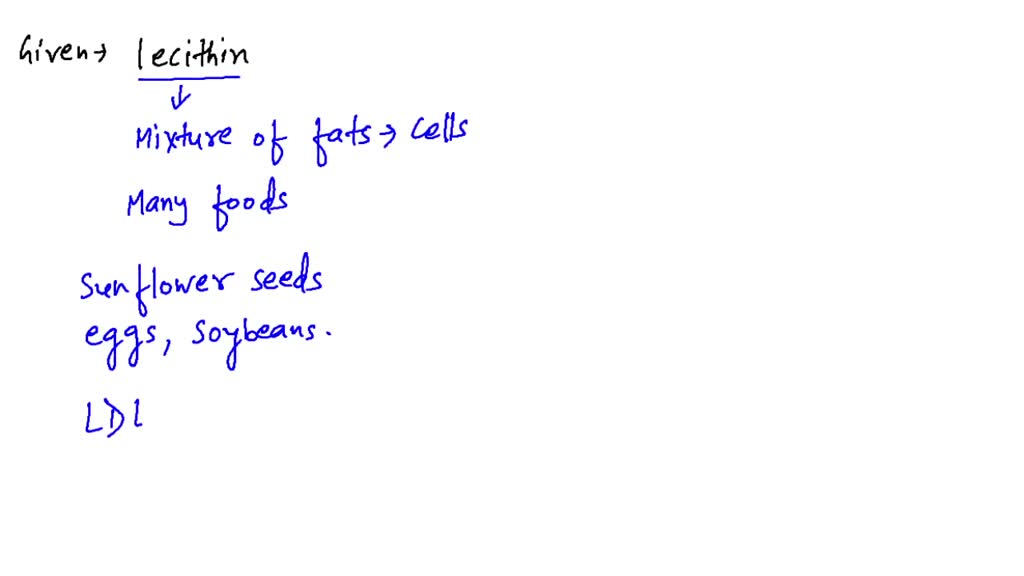 Given → lecithin
↓
Mixture of fats → cells
Many foods
Sunflower seeds
eggs, soybeans.
LDL